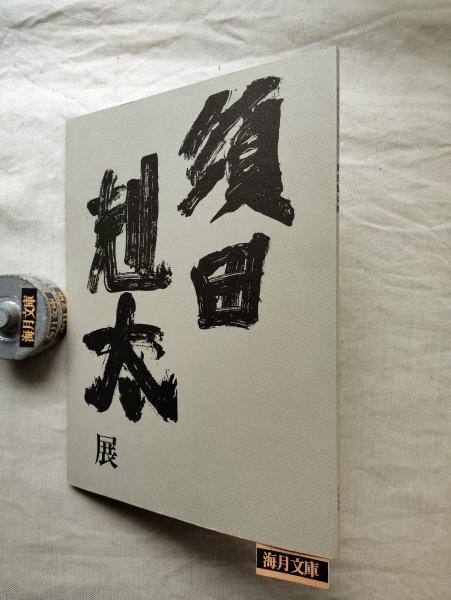 須田
剋太
展
海月文庫
海月文庫